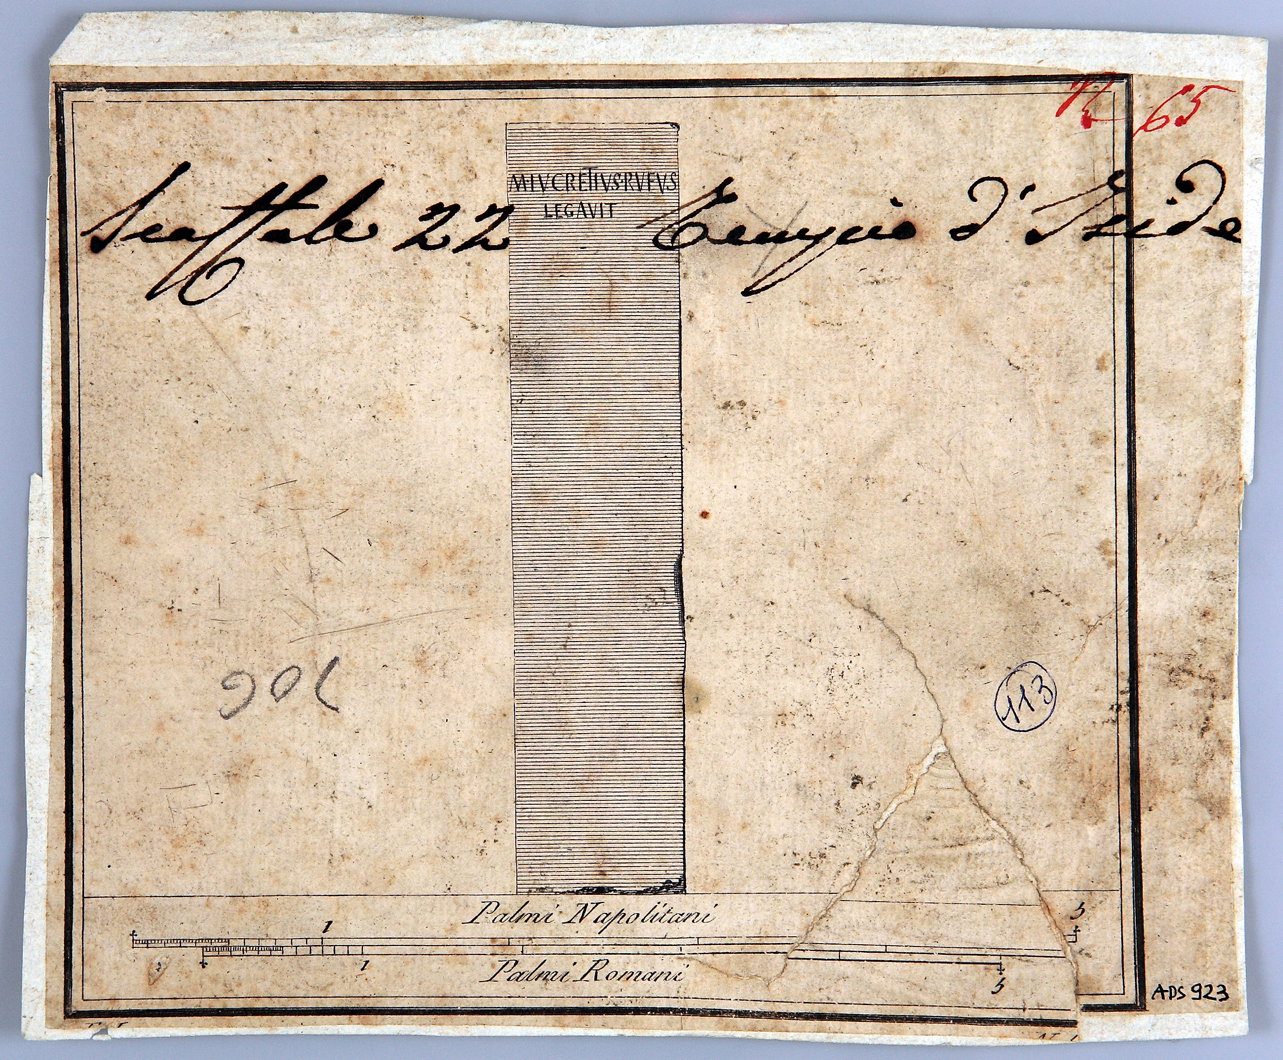 N 65
M LVCRETIVS RVFVS
LEGAVIT
Scaffale 22 Tempio d'Iside
113
706
Palmi Napolitani
1 5
1 5
Palmi Romani
ADS 923